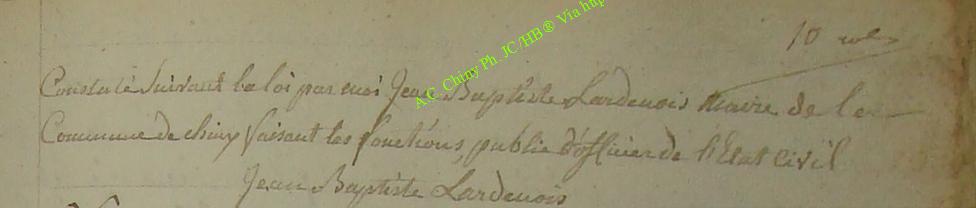 10
Constaté Suivant la loi par moi Jean Baptiste Lardenois Maire de la
Commune de chiny faisant les fonctions, public d'officier de l'Etat Civil
Jean Baptiste Lardenois
A.C. Chiny Ph. JC/HB® Via http